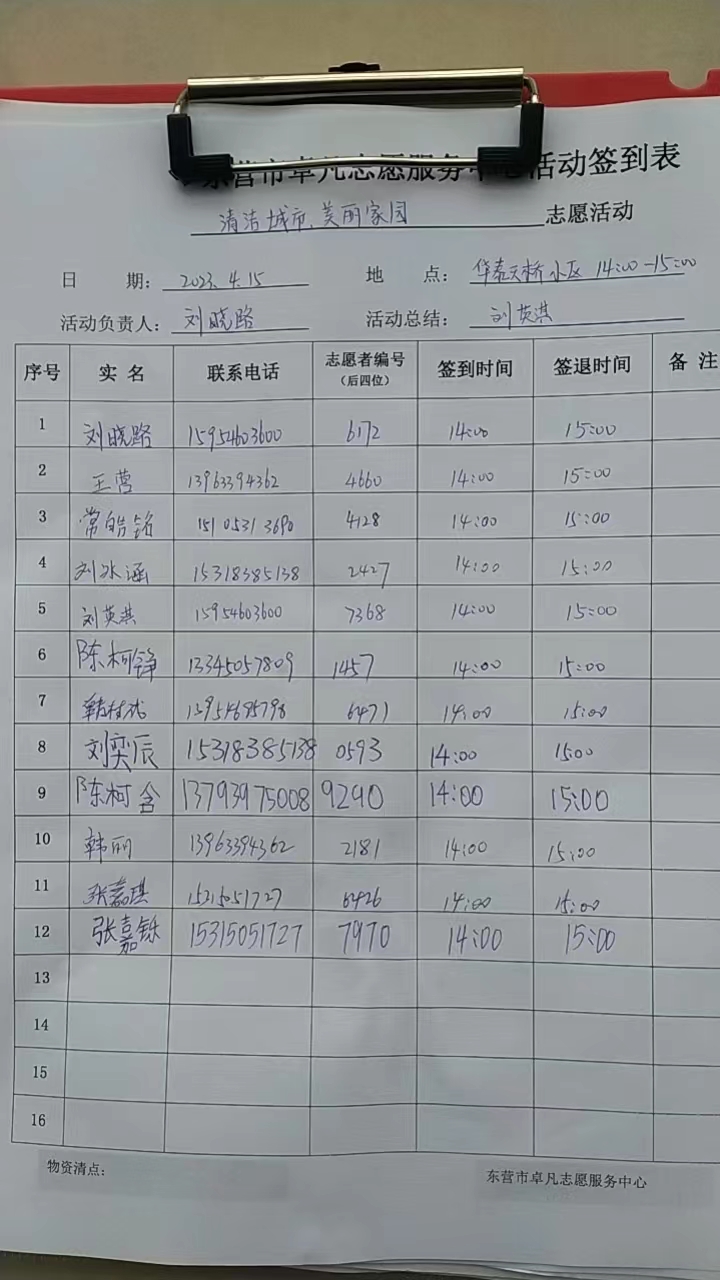 东营市卓凡志愿服务中心活动签到表
清洁城市、美丽家园 志愿活动
日 期: 2023.4.15 地 点: 华泰天桥小区 14:00-15:00
活动负责人: 刘晓路 活动总结: 刘英淇
序号 实名 联系电话 志愿者编号 (后四位) 签到时间 签退时间 备注
1 刘晓路 15954603600 6172 14:00 15:00
2 王营 13963394362 4660 14:00 15:00
3 常皓铭 15105313690 4128 14:00 15:00
4 刘冰涵 15318385138 2427 14:00 15:00
5 刘英淇 15954603600 7368 14:00 15:00
6 陈柯铮 13345057809 1457 14:00 15:00
7 6471 14:00 15:00
8 刘奕辰 15318385138 0593 14:00 15:00
9 陈柯含 13793975008 9290 14:00 15:00
10 韩丽 13963394362 2181 14:00 15:00
11 张嘉琪 15315051727 6426 14:00 15:00
12 张嘉铄 15315051727 7970 14:00 15:00
13
14
15
16
物资清点:
东营市卓凡志愿服务中心